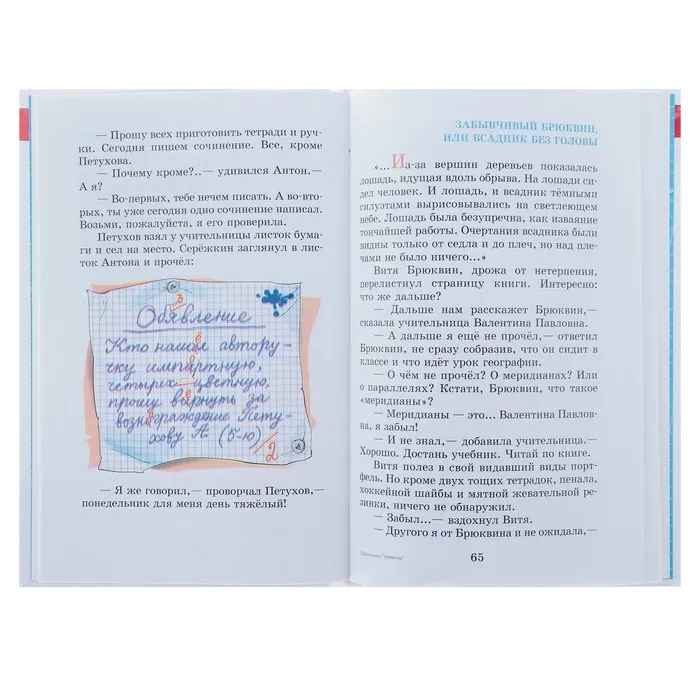 — Прошу всех приготовить тетради и руч-
ки. Сегодня пишем сочинение. Все, кроме
Петухова.
— Почему кроме?..— удивился Антон.—
А я?
— Во-первых, тебе нечем писать. А во-вто-
рых, ты уже сегодня одно сочинение написал.
Возьми, пожалуйста, я его проверила.
Петухов взял у учительницы листок бума-
ги и сел на место. Серёжкин заглянул в лис-
ток Антона и прочёл:
Обявление
Кто нашол автору-
чку импартную,
четырех цветную,
прошу вирнуть за
вознаграждение Пету-
хову А. (5-ю) /2
— Я же говорил,— проворчал Петухов,—
понедельник для меня день тяжёлый!
ЗАБЫВЧИВЫЙ БРЮКВИН,
ИЛИ ВСАДНИК БЕЗ ГОЛОВЫ
«...Из-за вершин деревьев показалась
лошадь, идущая вдоль обрыва. На лошади си-
дел человек. И лошадь, и всадник тёмными
силуэтами вырисовывались на светлеющем
небе. Лошадь была безупречна, как изваяние
тончайшей работы. Очертания всадника были
видны только от седла и до плеч, но над пле-
чами не было ничего...»
Витя Брюквин, дрожа от нетерпения,
перелистнул страницу книги. Интересно:
что же дальше?
— Дальше нам расскажет Брюквин,—
сказала учительница Валентина Павловна.
— А дальше я ещё не прочёл,— ответил
Брюквин, не сразу сообразив, что он сидит в
классе и что идёт урок географии.
— О чём не прочёл? О меридианах? Или
о параллелях? Кстати, Брюквин, что такое
«меридианы»?
— Меридианы — это... Валентина Павлов-
на, я забыл!
— И не знал,— добавила учительница.—
Хорошо. Достань учебник. Читай по книге.
Витя полез в свой видавший виды порт-
фель. Но кроме двух тощих тетрадок, пенала,
хоккейной шайбы и мятной жевательной ре-
зинки, ничего не обнаружил.
— Забыл...— вздохнул Витя.
— Другого я от Брюквина и не ожидала,—
65